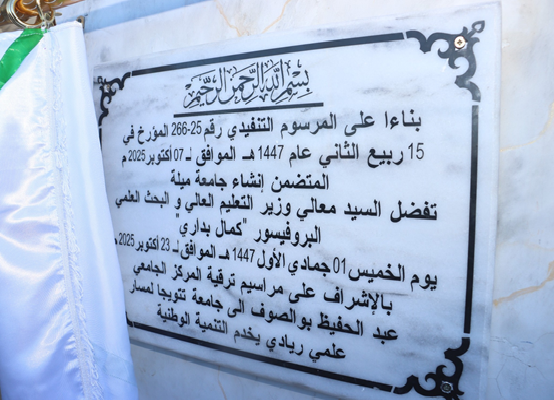 بسم الله الرحمن الرحيم
بناءا على المرسوم التنفيذي رقم 25-266 المؤرخ في
15 ربيع الثاني عام 1447 هـ الموافق لـ 07 أكتوبر 2025 م
المتضمن إنشاء جامعة ميلة
تفضل السيد معالي وزير التعليم العالي و البحث العلمي
البروفيسور "كمال بداري"
يوم الخميس 01 جمادي الأول 1447 هـ الموافق لـ 23 أكتوبر 2025 م
بالإشراف على مراسيم ترقية المركز الجامعي
عبد الحفيظ بوالصوف الى جامعة تتويجا لمسار
علمي ريادي يخدم التنمية الوطنية